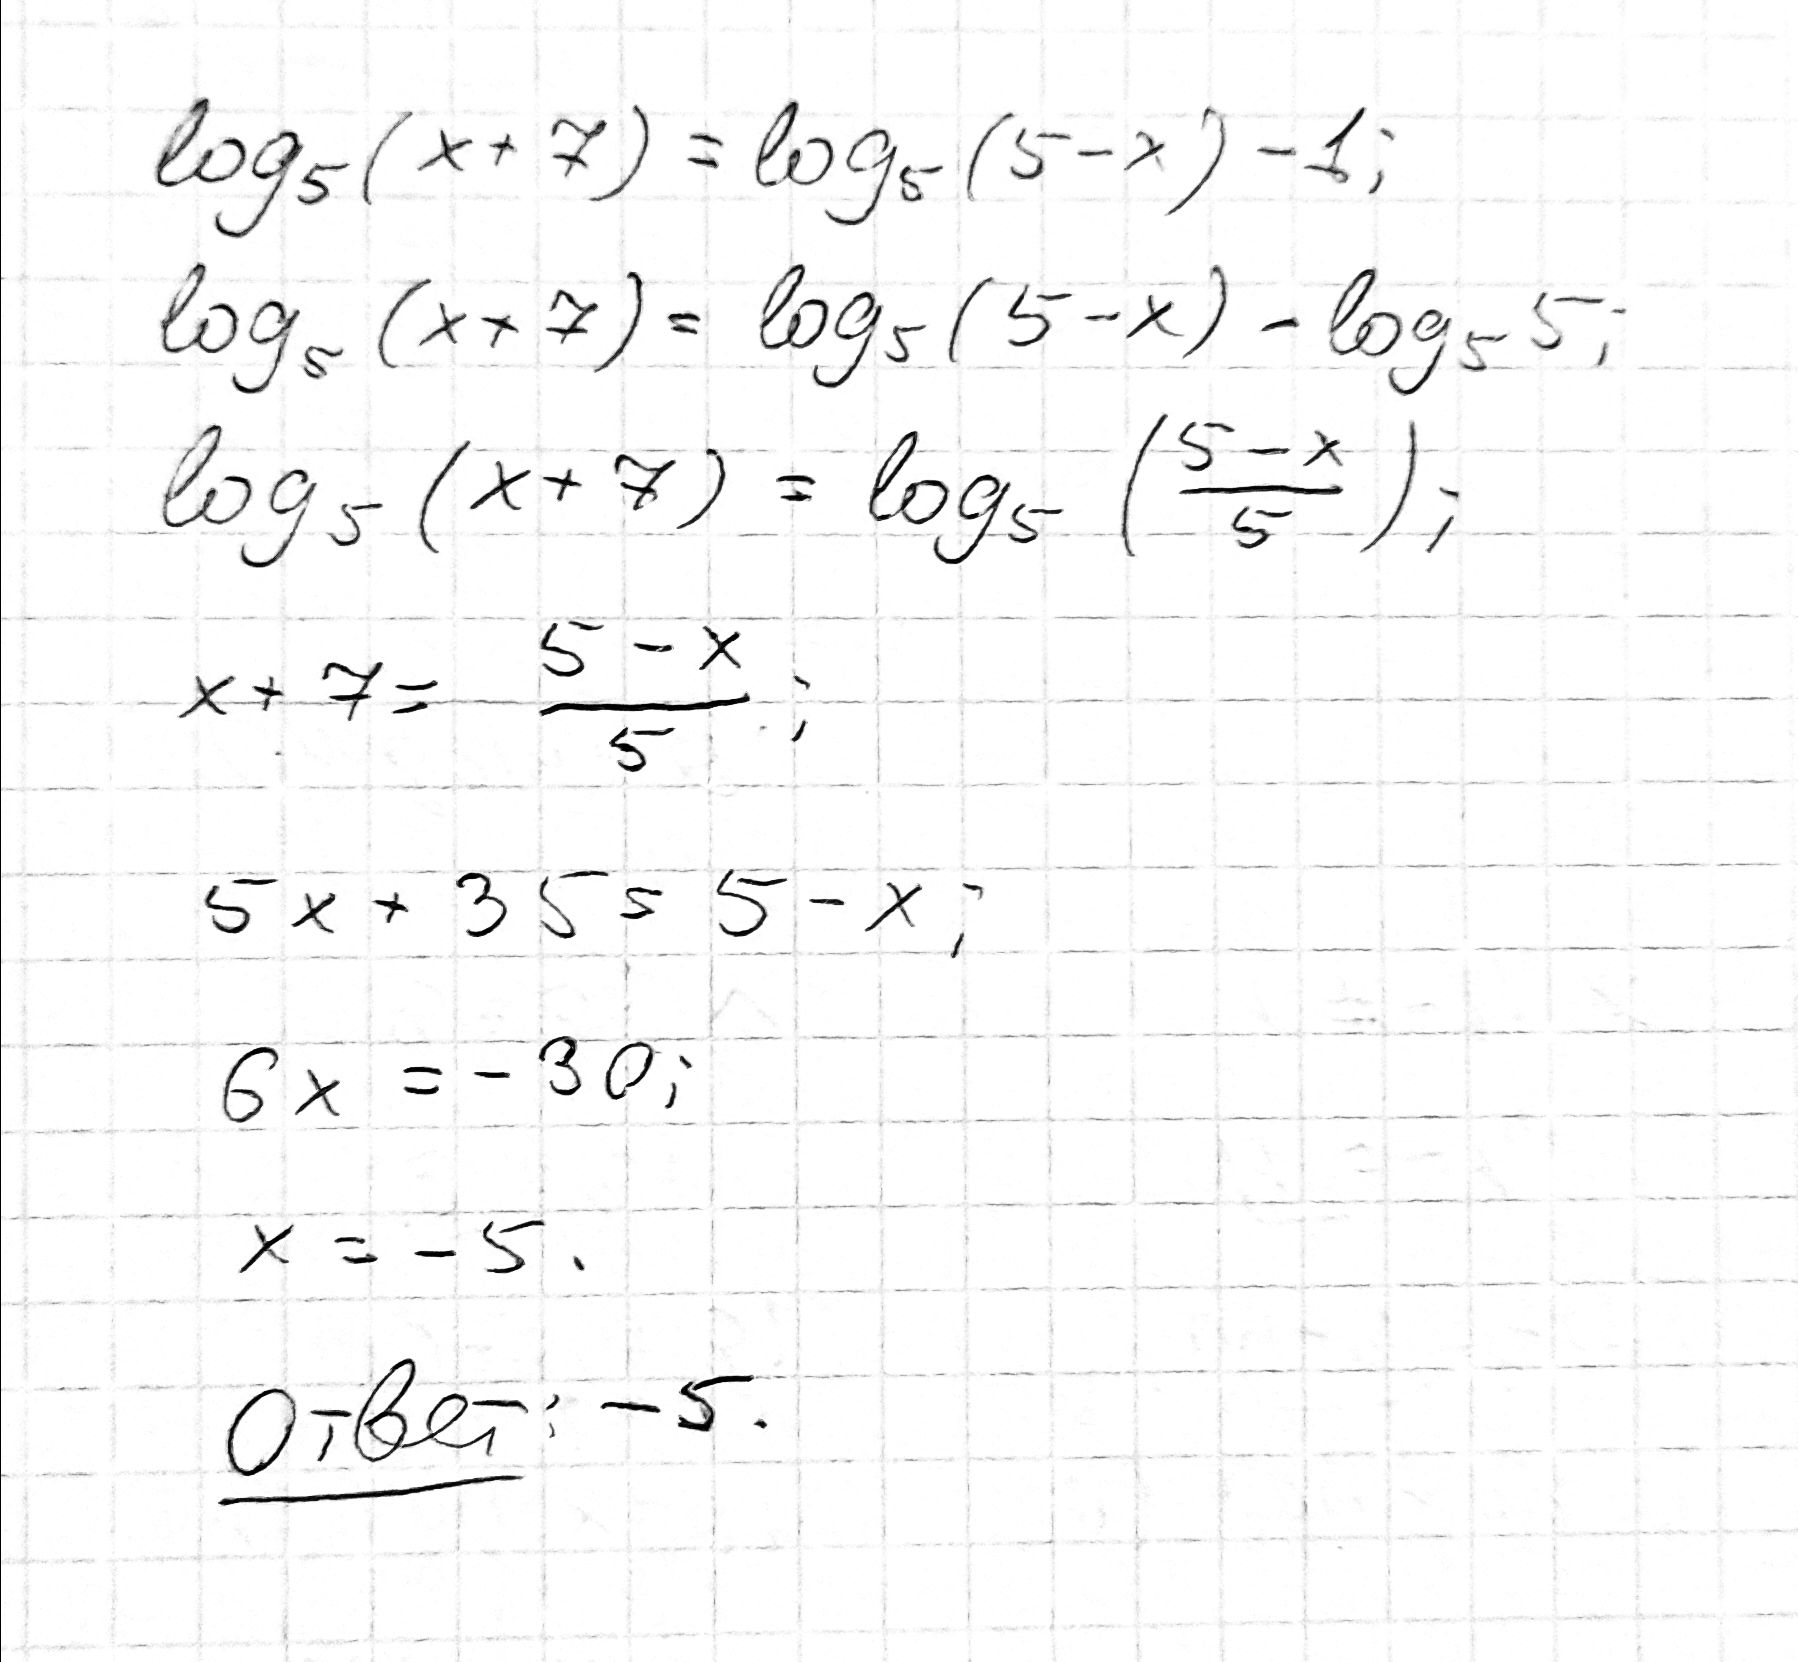 log₅(x+7)=log₅(5-x)-1;
log₅(x+7)=log₅(5-x)-log₅5;
log₅(x+7)=log₅((5-x)/5);
x+7=(5-x)/5;
5x+35=5-x;
6x=-30;
x=-5.
Ответ: -5.